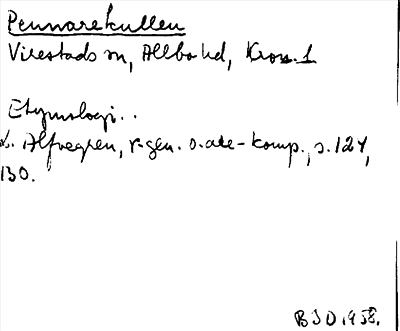 Pennarekullen
Virestads sn, Allbo hd, Kron. l
Etymologi..
L. Alfvegren, r-gen. o. ate-komp., s. 124,
130.
BJO 1958.